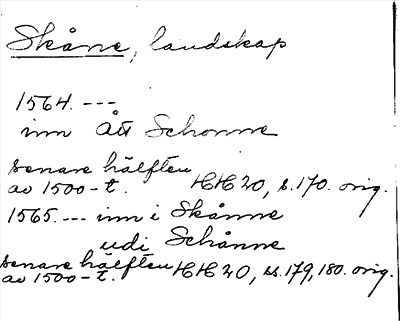 Skåne, landskap
1564. ---
inn Ått Schonne
senare hälften
av 1500-t. HH 20, s. 170. orig.
1565. --- inn i Skånne
udi Schånne
senare hälften
av 1500-t. HH 20, ss. 179, 180. orig.